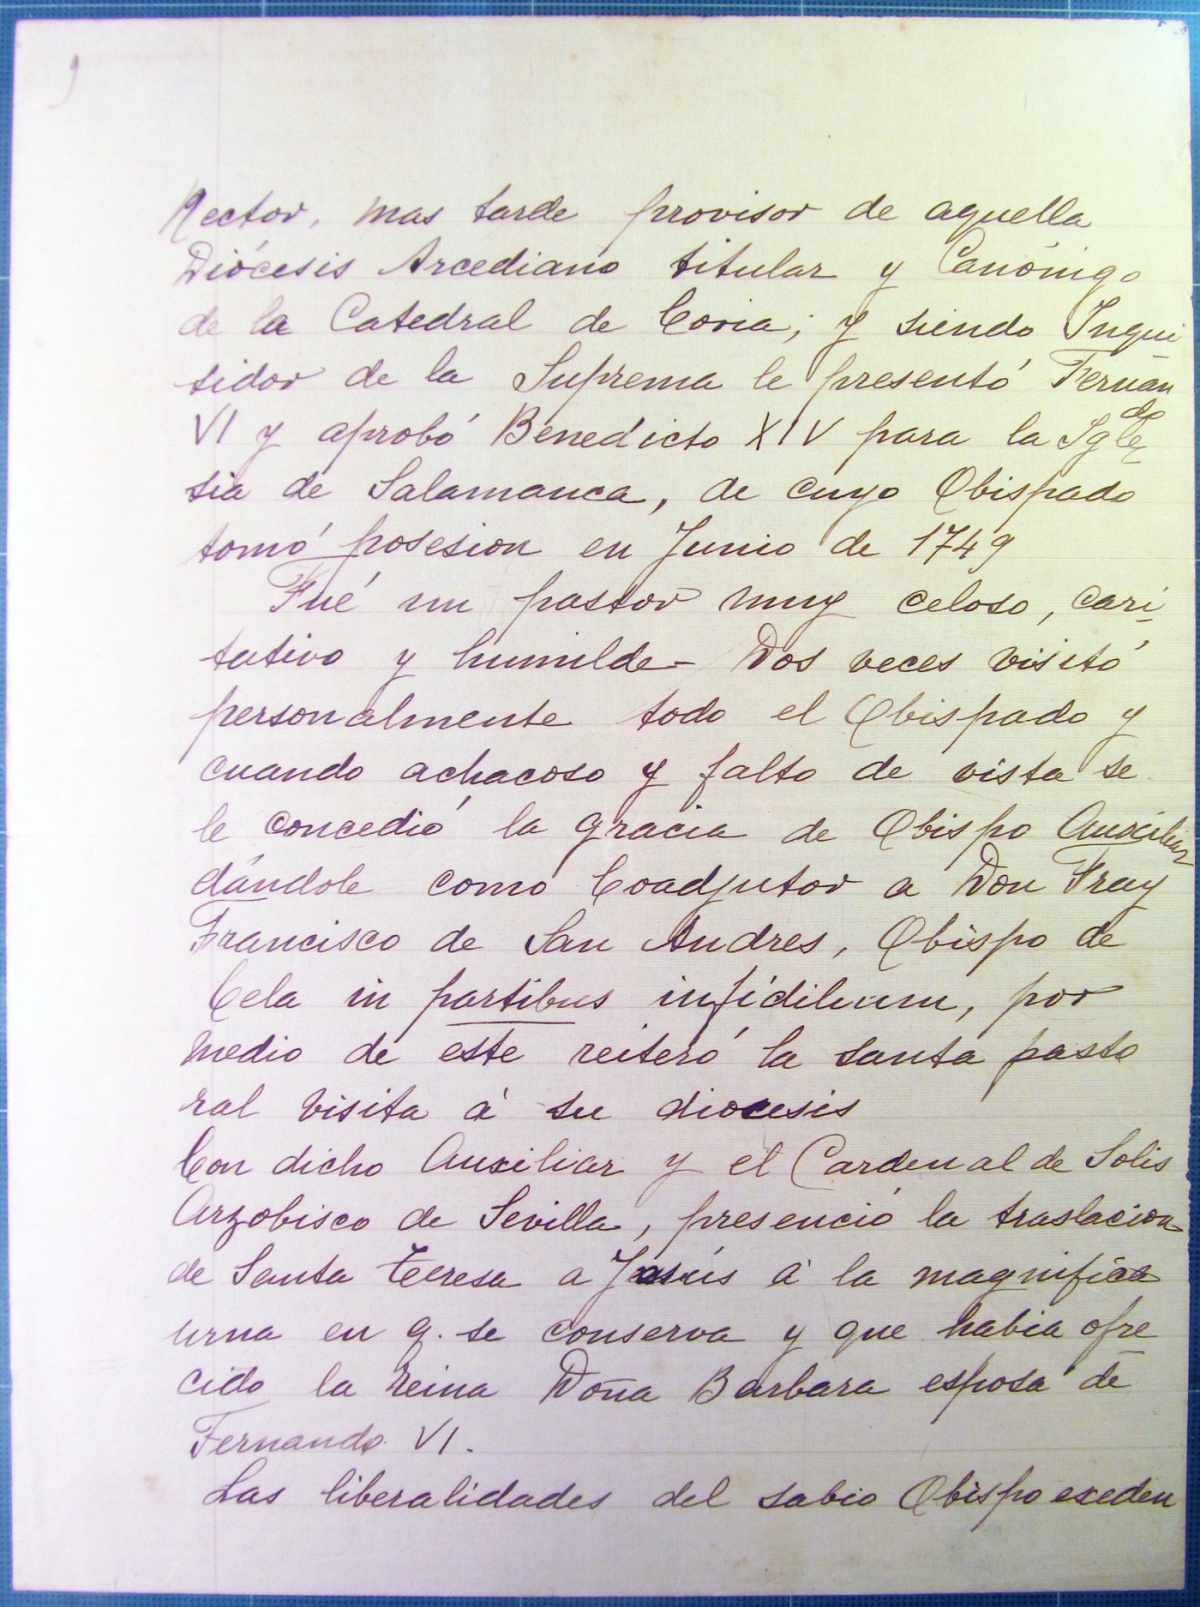 Rector, mas tarde provisor de aquella
Diócesis Arcediano titular y Canónigo
de la Catedral de Coria; y siendo Inqui
sidor de la Suprema le presentó Fernan
do
VI y aprobó Benedicto XIV para la Igle
sia de Salamanca, de cuyo Obispado
tomó posesion en Junio de 1749
Fué un pastor muy celoso, cari-
tativo y humilde - Dos veces visitó
personalmente todo el Obispado y
cuando achacoso y falto de vista se
le concedió la gracia de Obispo Auxiliar
dándole como Coadjutor a Don Fray
Francisco de San Andres, Obispo de
Cela in partibus infidilium, por
medio de este reiteró la santa pasto
ral visita á su diocesis
Con dicho Auxiliar y el Cardenal de Solis
Arzobisco de Sevilla, presenció la traslacion
de Santa Teresa a Jesús á la magnifica
urna en q. se conserva y que habia ofre
cido la reina Doña Barbara esposa de
Fernando VI.
Las liberalidades del sabio Obispo exceden